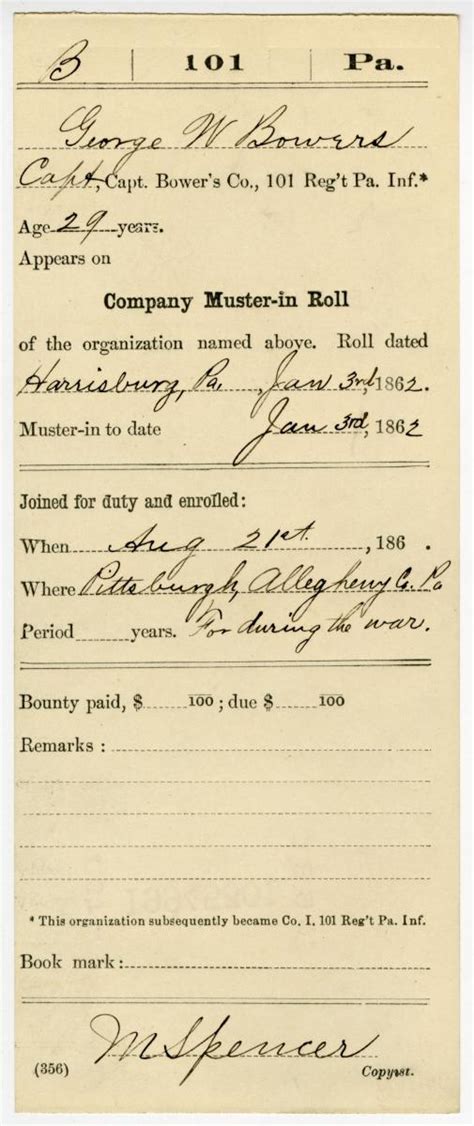 B | 101 | Pa.
George W Bowers
Capt, Capt. Bower's Co., 101 Reg't Pa. Inf.*
Age 29 years.
Appears on
Company Muster-in Roll
of the organization named above. Roll dated
Harrisburg, Pa., Jan 3rd, 1862.
Muster-in to date Jan 3rd, 1862
Joined for duty and enrolled:
When Aug 21st, 186 .
Where Pittsburgh, Allegheny Co. Pa
Period years. For during the war.
Bounty paid, $ 100; due $ 100
Remarks:
* This organization subsequently became Co. I, 101 Reg't Pa. Inf.
Book mark:
M Spencer
(356) Copyist.